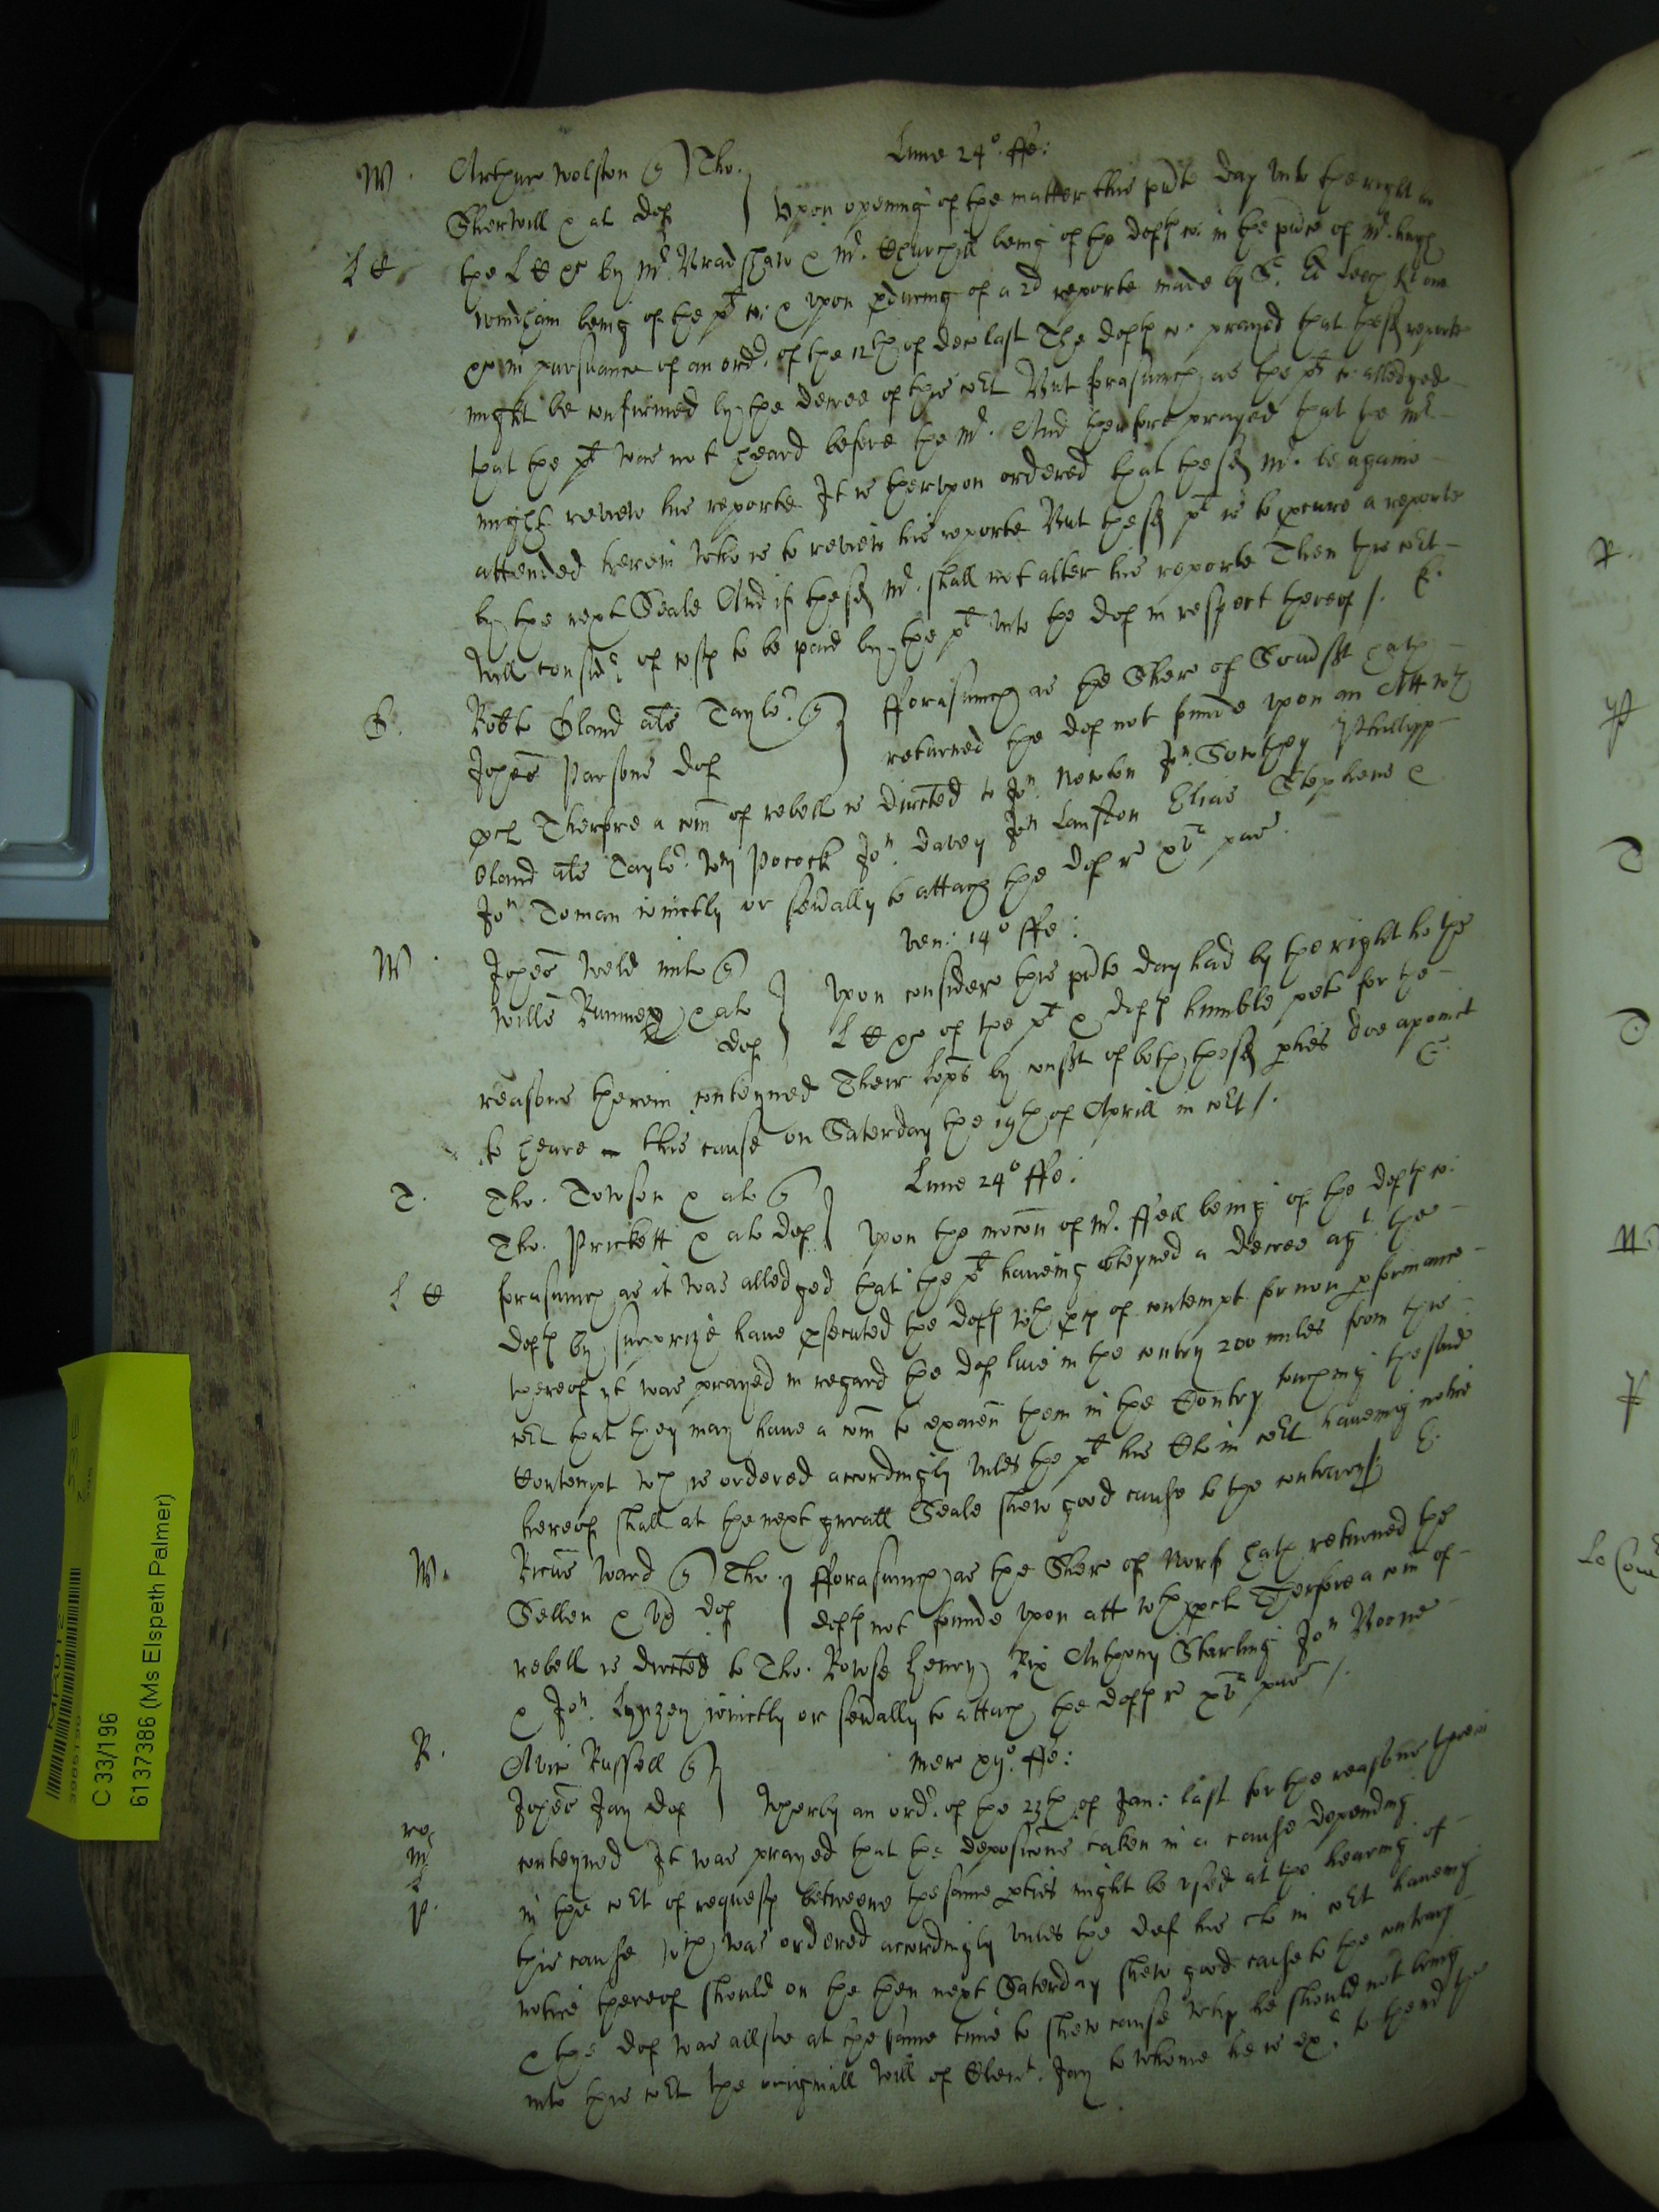 Lune 24° ffe:
W. Arthur Wolston Tho.
Sherwill & al def Upon opening of the matter this pnte day unto the right ho
L C the L C &c by Mr Bradshaw & Mr. Churchill being of the defts co: in the pnce of Mr. Hugh
Windham being of the plt co: & upon pduceing of a 2d reporte made by Sr.
&c in pursuance of an ordr. of the 12th of Dec last The defts co: prayed that the sd reporte
might be confirmed by the decree of this Cort But forasmuch as the plt co: alledged
that the plt was not heard before the Mr. And therfore prayed that the Mr
might review his reporte It is therupon ordered that the sd Mr. be againe
attended herein who is to review his reporte But the sd plt is to pcure a reporte
by the next Seale And if the sd Mr. shall not alter his reporte Then this Cort
will considr of costs to be paid by the plt unto the def in respect thereof /.
B. Robte Bland als Taylor. fforasmuch as the Sher of hath
Johes Parsons def returned the def not founde upon an Att wth
pcl Therfore a com of rebell is directed to Jon. Newton Jon. Southey Phillipp
Bland als Taylor. Wm Pocock Jon. Davey Jon Lanston Elias Stephens &
Jon. Toman joinctly or sevally to attach the def
Ven: 14° ffe:
W. Johes Weld mil
Willm & al Upon considere this pnte day had by the right ho the
def L C &c of the plt & defts humble pete for the
reasons therein conteyned Their Lops by consent of both the sd pties doe apoinct
to heare this cause on Saterday the 19th of Aprill in Cort /.
Lune 24° ffe:
T. Tho. Towson & al
Tho. Prickett & al def Upon the mocon of Mr. ffell being of the defts co:
L C forasmuch as it was alledged that the plt haveing obteyned a decree agt. the
defts by surprize have psecuted the defts wth pcs of contempt for non pformance
thereof yt was prayed in regard the def live in the contry 200 miles from this
Cort that they may have a com to examen them in the Contry touching the said
Contempt wch is ordered accordingly unles the plt his Cl in Cort haveing notice
hereof shall at the next gnrall Seale shew good cause to the contrary /.
W. Ricus Ward Tho. fforasmuch as the Sher of Norf hath returned the
Sellen & ux def defts not founde upon att wth pcl Therfore a com of
rebell is directed to Tho. Rowse Henry Rix Anthony Starling Jon Boone
& Jon. Lynzey joinctly or sevally to attach the defts
Mer xij°. ffe:
R. Avis Russell
Johes Jay def Wherby an ordr. of the 23th of Jan: last for the reasons therein
conteyned It was prayed that the deposicons taken in a cause depending
in the Cort of requests betweene the same pties might be used at the hearing of
this cause wch was ordered accordingly unles the def his clo in Cort haveing
notice thereof should on the then next Saterday shew good cause to the contrary
& the def was allsoe at the same time to shew cause why he should not bring
into this Cort the originall Will of Clemt. Jay to whome he is exr. to thend the
C 33/196
6137386 (Ms Elspeth Palmer)